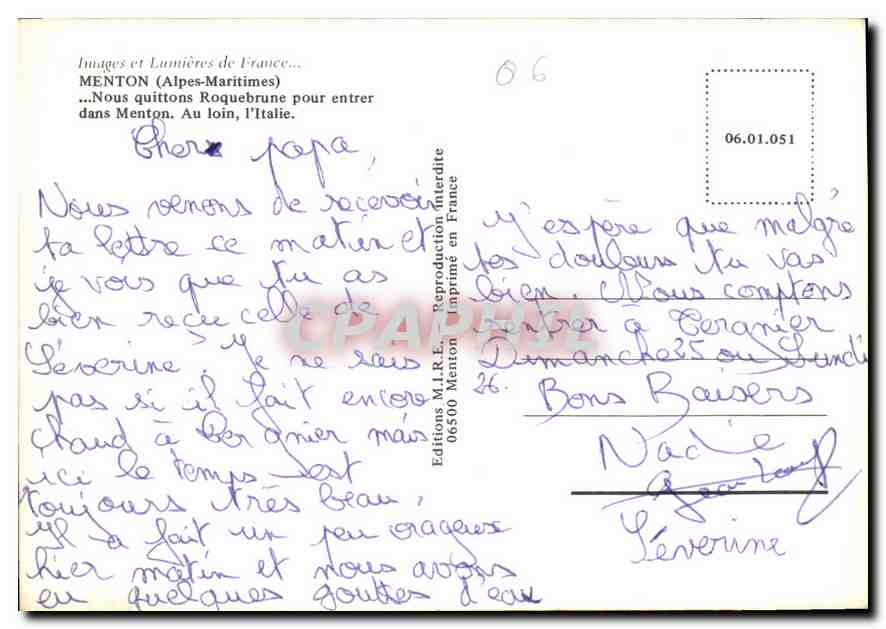 Images et Lumières de France...
MENTON (Alpes-Maritimes)
...Nous quittons Roquebrune pour entrer
dans Menton. Au loin, l'Italie.
06
06.01.051
Cher papa,
Nous venons de recevoir
ta lettre ce matin et
je vois que tu as
bien reçu celle de
Séverine. Je ne sais
pas si il fait encore
chaud à Tergnier mais
ici le temps est
toujours très beau,
Il a fait un peu orageux
hier matin et nous avons
eu quelques gouttes d'eau
Editions M.I.R.E. Reproduction Interdite
06500 Menton Imprimé en France
J'espère que malgré
tes douleurs tu vas
bien. Nous comptons
rentrer à Tergnier
Dimanche 25 ou Lundi
26.
Bons Baisers
Nadie
Séverine
CPAPHIL